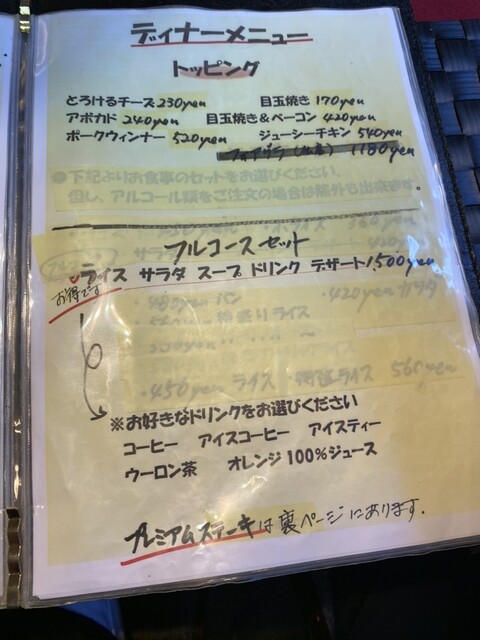 ディナーメニュー
トッピング
とろけるチーズ 230yen 目玉焼き 170yen
アボカド 240yen 目玉焼き&ベーコン 420yen
ポークウィンナー 520yen ジューシーチキン 540yen
フォアグラ 1180yen
●下記よりお食事のセットをお選びください。
但し、アルコール類をご注文の場合は除外も出来ます。
フルコースセット
ライス サラダ スープ ドリンク デザート 1,500yen
お得です
・480yen パン ・420yen サラダ
・450yen ライス
※お好きなドリンクをお選びください
コーヒー アイスコーヒー アイスティー
ウーロン茶 オレンジ100%ジュース
プレミアムステーキは裏ページにあります.